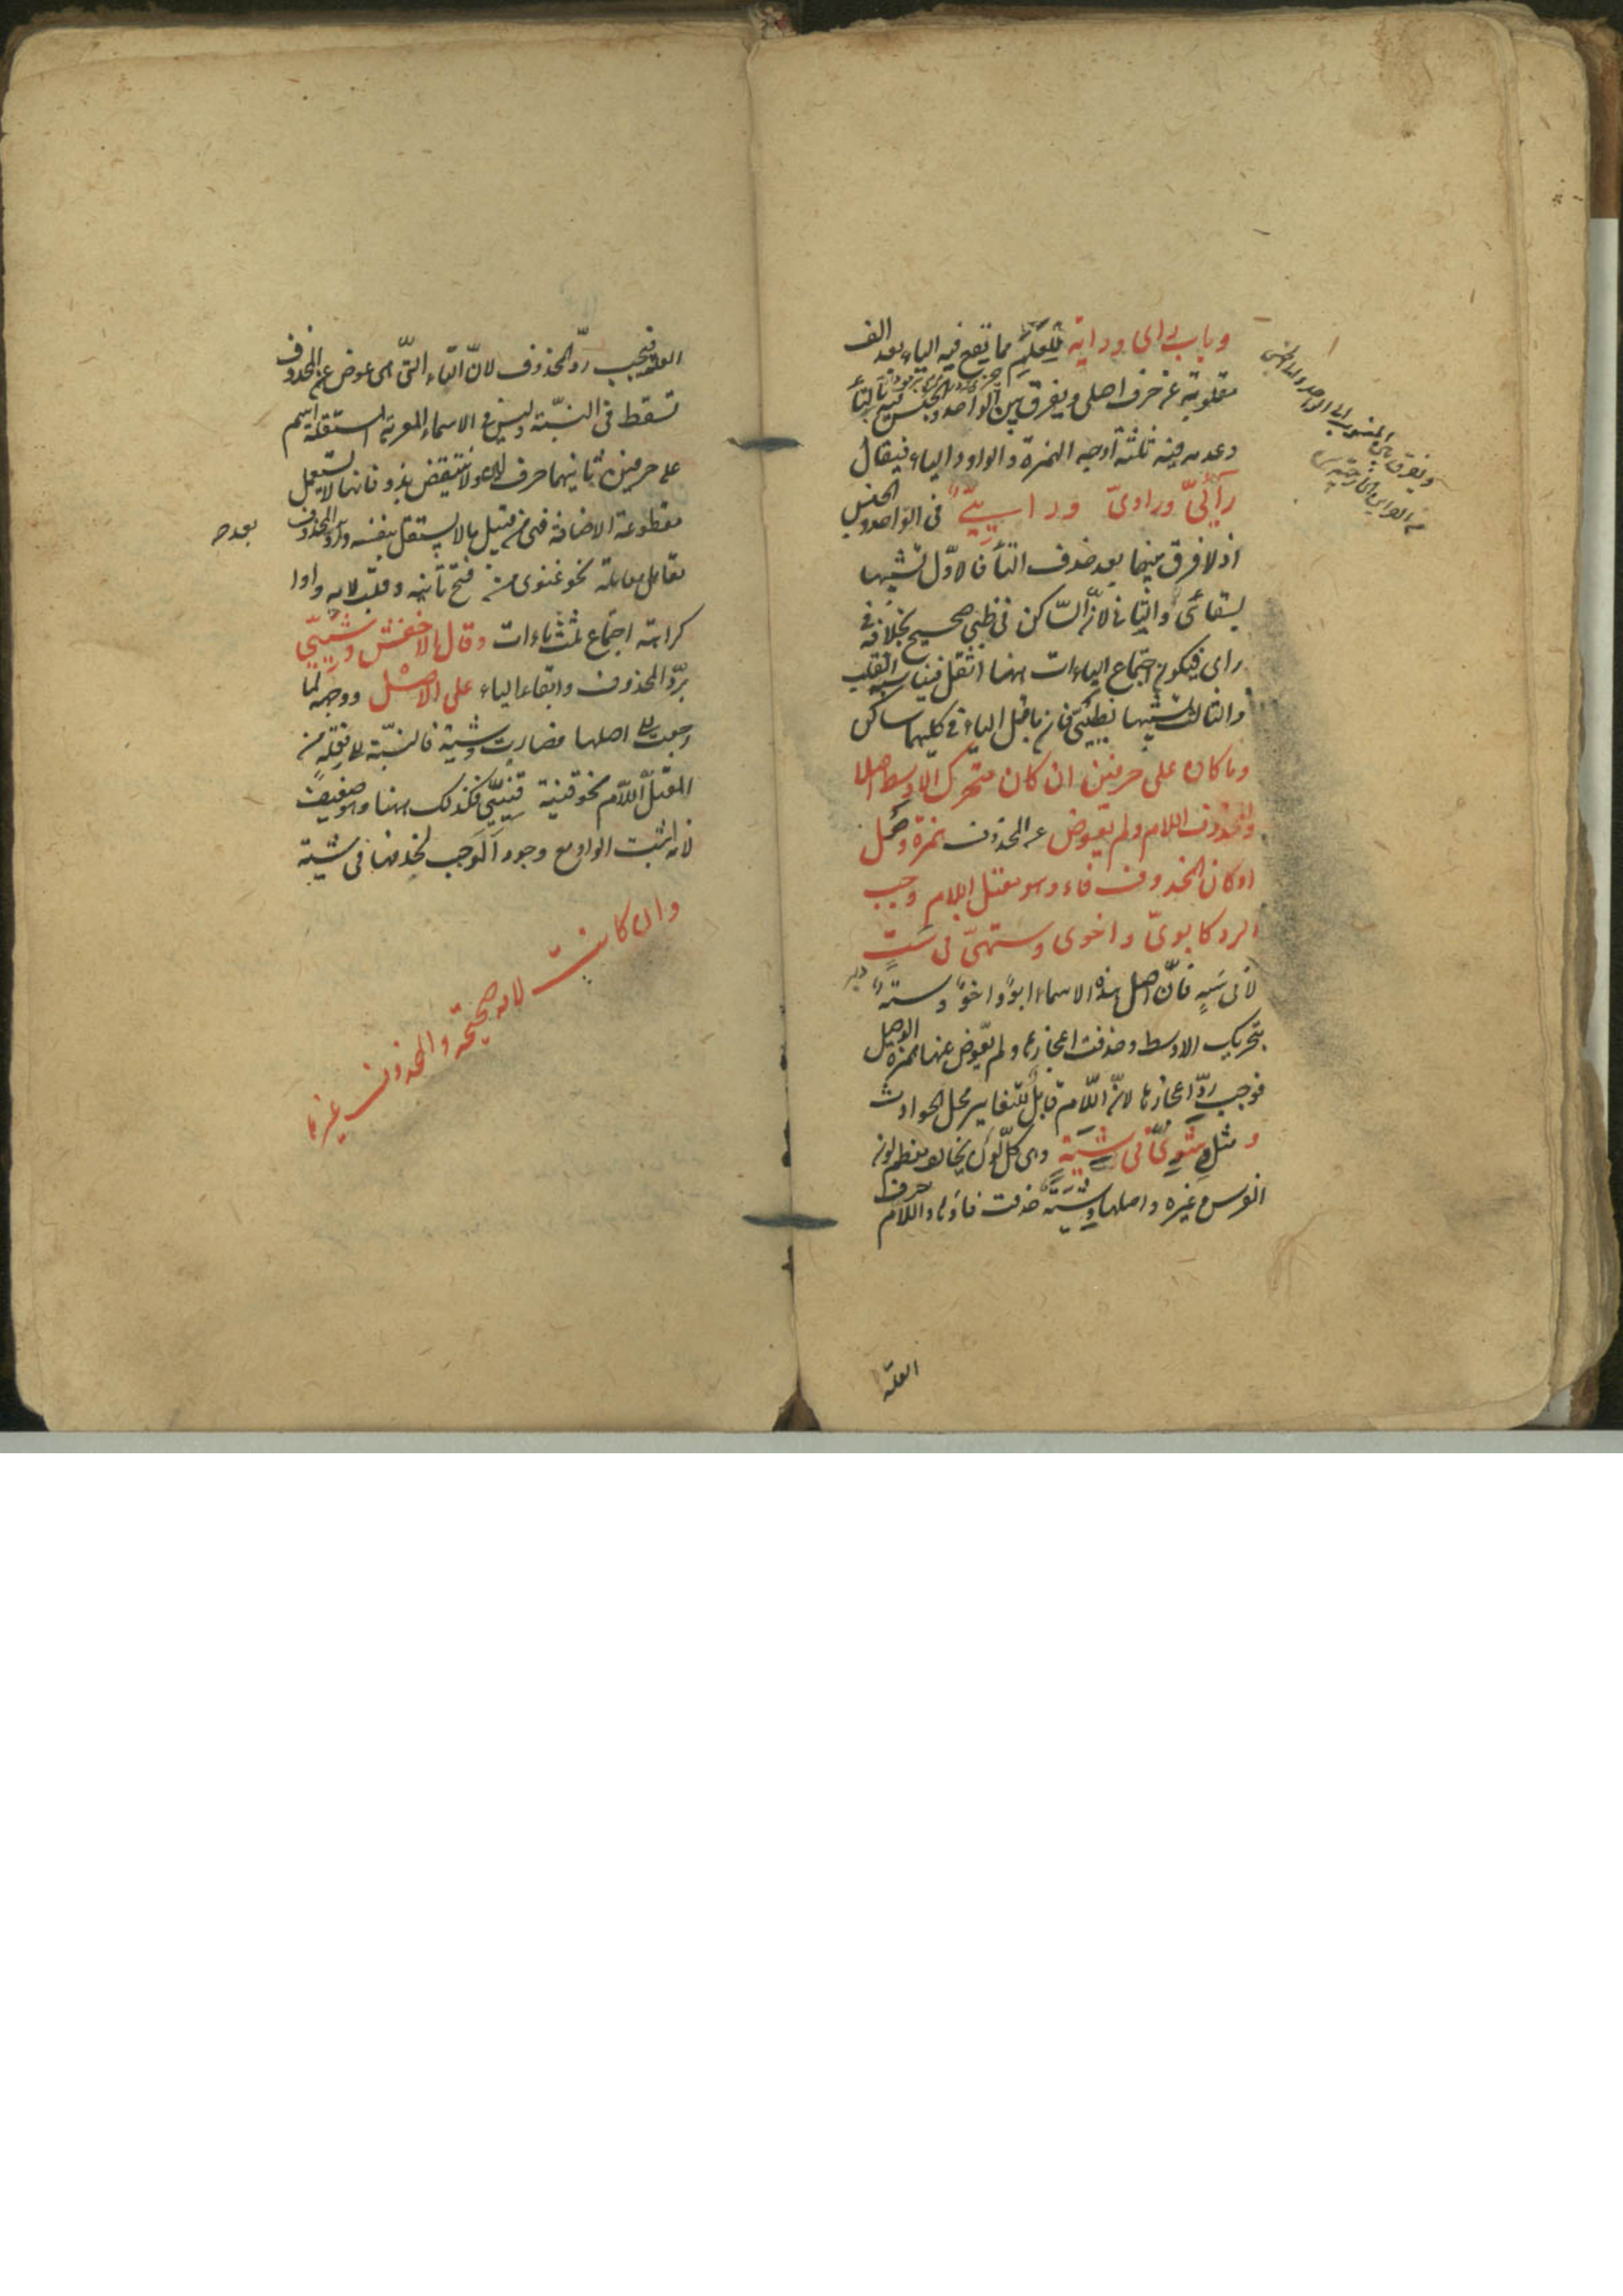 وباب راى وراية للعلم مما تقع فيه الياء بعد الف
مقلوبة عن حرف اصلى ويفرق بين الواحد والجنس فيه بالتاء
وعدمه فيه ثلثة اوجه الهمزة والواو والياء فيقال
رآئىّ وراوىّ وراييّ فى الواحد والجنس
اذ لا فرق بينهما بعد حذف التاء فالاوّل لشبهها
بسقائى والثانى لانّ الساكن فى ظبى صحيح بخلافه فى
راى فيكون اجتماع الياءات ههنا اثقل فيناسبه القلب
والثالث لشبهها بظبيىّ فان ما قبل الياء فى كليهما ساكن
وما كان على حرفين ان كان متحرك الاوسط اصلا
والمحذوف اللام ولم يعوض عن المحذوف همزة وصل
او كان المحذوف فاء وهو معتل اللام وجب
الرد كابوىّ واخوى وستهىّ فى ست
فانّ اصل هذه الاسماء ابوٌ واخوٌ وستهٌ
بتحريك الاوسط وحذفت اعجازها ولم يعوّض عنها همزة الوصل
فوجب ردّ اعجازها لانّ اللّام قابل للتغاير محل الحوادث
ومثل وشوىّ فى شية وهى كلّ لون يخالف معظم لون
الفرس وغيره واصلها وشية حذفت فاؤها واللام حرف
العلة
العلة فيجب ردّ المحذوف لانّ التاء التّى هى عوض عن المحذوف
تسقط فى النسبة وليس فى الاسماء المعربة المستقلة اسم
على حرفين ثانيهما حرف لين ولا ينتقض بذو فانها لا يستعمل
مقطوعة الاضافة فهى من قبيل ما لا يستقل بنفسه ورد المحذوف
بعده
نحو غنوى من فتح ثانيه وقلب لامه واوا
كراهة اجتماع ثلث ياءات وقال الاخفش وشييّ
بردّ المحذوف وابقاء الياء على الاصل ووجهه لما
رجعت الى اصلها فصارت وشية فالنسبة الى فعلة من
المعتلّ اللاّم نحو قنية قنييّ فكذلك ههنا وهو ضعيف
لانه اثبت الواو مع وجود الموجب لحذفها فى شية
وان كانت لامه صحيحة والمحذوف غيرها